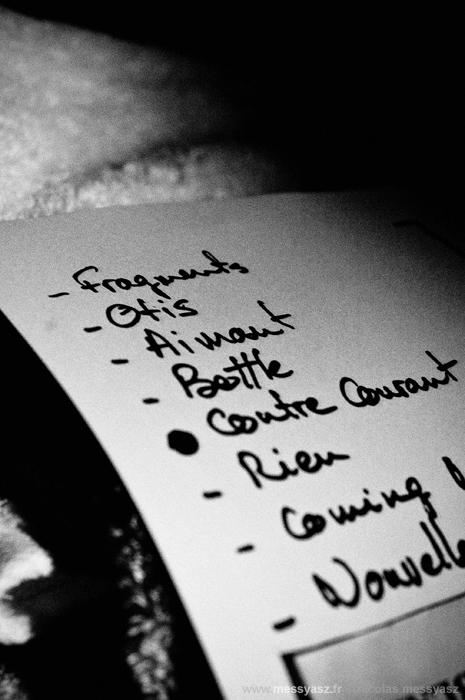 - Fragments
- Otis
- Aimant
- Bottle
● Contre Courant
- Rien
- Coming
- Nouvelle
www.messyasz.fr nicolas.messyasz